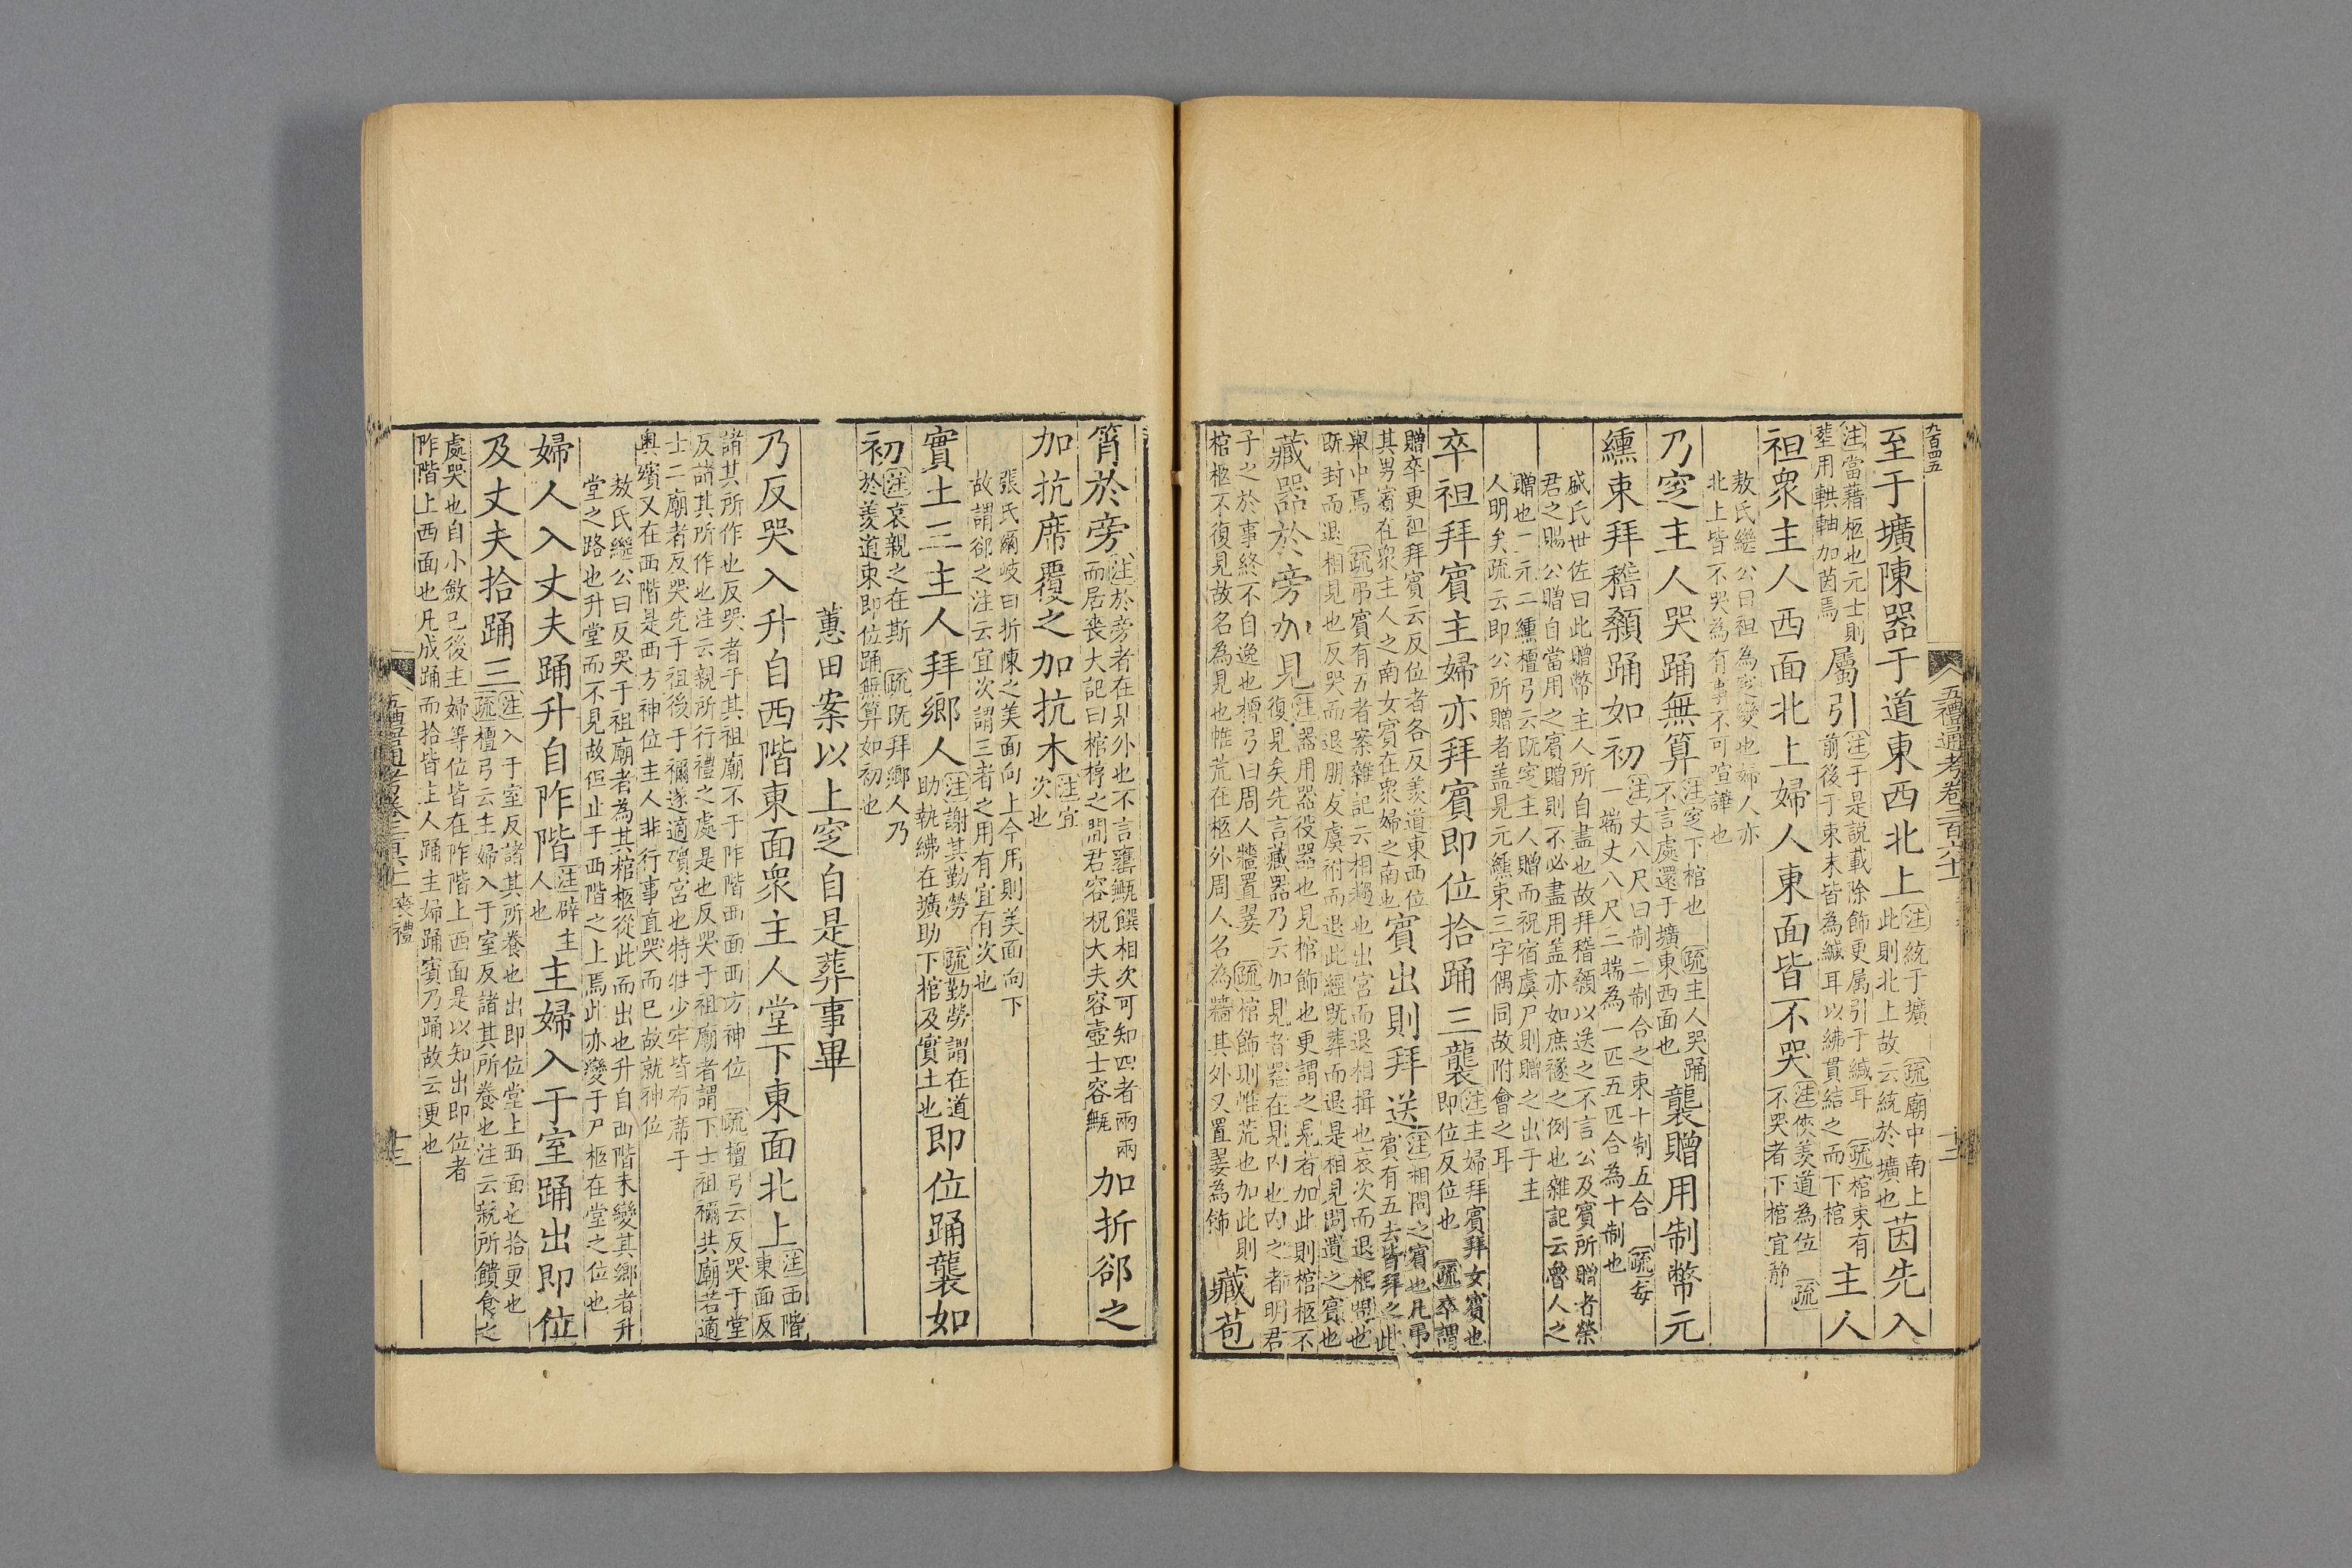 九百四五
五禮通考卷二百六十
至于壙陳器于道東西北上
注統于壙 疏廟中南上
此則北上故云統於壙也
茵先入
注當藉柩也元士則
塟用輁軸加茵焉
屬引
注于是說載除飾更属引于緘耳 疏棺束有
前後于束末皆為緘耳以紼貫結之而下棺
主人
袒衆主人西面北上婦人東面皆不哭
注俠羨道為位 疏
不哭者下棺宜静
敖氏繼公曰袒為窆變也婦人亦
北上皆不哭為有事不可喧譁也
乃窆主人哭踊無算
注窆下棺也 疏主人哭踊
不言處還于壙東西面也
襲贈用制幣元
纁束拜稽顙踊如初
注丈八尺曰制二制合之束十制五合 疏每
一端丈八尺二端為一匹五匹合為十制也
盛氏世佐曰此贈幣主人所自盡也故拜稽顙以送之不言公及賓所贈者榮
君之賜公贈自當用之賓贈則不必盡用盖亦如庶襚之例也雜記云魯人之
贈也三元二纁檀弓云既窆主人贈而祝宿虞尸則贈之出于主
人明矣疏云即公所贈者盖見元纁束三字偶同故附會之耳
卒袒拜賓主婦亦拜賓即位拾踊三襲
注主婦拜賓拜女賓也
即位反位也 疏卒謂
贈卒更袒拜賓云反位者各反羨道東西位
其男賓在衆主人之南女賓在衆婦之南也
賓出則拜送
注相問之賓也凡弔
賓有五去皆拜之此
舉中焉 疏弔賓有五者案雜記云相趨也出宮而退相揖也哀次而退相問也
既封而退相見也反哭而退朋友虞祔而退此經既葬而退是相見問遺之賓也
藏器於旁加見
注器用器役器也見棺飾也更謂之見者加此則棺柩不
復見矣先言藏器乃云加見者器在見內也內之者明君
子之於事終不自逸也檀弓曰周人牆置翣 疏棺飾則帷荒也加此則
棺柩不復見故名為見也帷荒在柩外周人名為牆其外又置翣為飾
藏苞
筲於旁
注於旁者在見外也不言甕甒饌相次可知四者兩兩
而居喪大記曰棺椁之間君容柷大夫容壺士容甒
加折郤之
加抗席覆之加抗木
注宜
次也
張氏爾岐曰折陳之美面向上今用則美面向下
故謂郤之注云宜次謂三者之用有宜有次也
實土三主人拜鄉人
注謝其勤勞 疏勤勞謂在道
助執紼在壙助下棺及實土也
即位踊襲如
初
注哀親之在斯 疏既拜鄉人乃
於羨道東即位踊無算如初也
蕙田案以上窆自是葬事畢
乃反哭入升自西階東面衆主人堂下東面北上
注西階
東面反
諸其所作也反哭者于其祖廟不于阼階西面西方神位 疏檀弓云反哭于堂
反諸其所作也注云親所行禮之處是也反哭于祖廟者謂下士祖禰共廟若適
士二廟者反哭先于祖後于禰遂適殯宮也特牲少牢皆布席于
奧殯又在西階是西方神位主人非行事直哭而已故就神位
敖氏繼公曰反哭于祖廟者為其棺柩從此而出也升自西階未變其鄉者升
堂之路也升堂而不見故但止于西階之上焉此亦變于尸柩在堂之位也
婦人入丈夫踊升自阼階
注辟主
人也
主婦入于室踊出即位
及丈夫拾踊三
注入于室反諸其所養也出即位堂上西面也拾更也
疏檀弓云主婦入于室反諸其所養也注云親所饋食之
處哭也自小斂已後主婦等位皆在阼階上西面是以知出即位者
阼階上西面也凡成踊而拾皆主人踊主婦踊賓乃踊故云更也
五禮通考卷二百六十 喪禮
十三